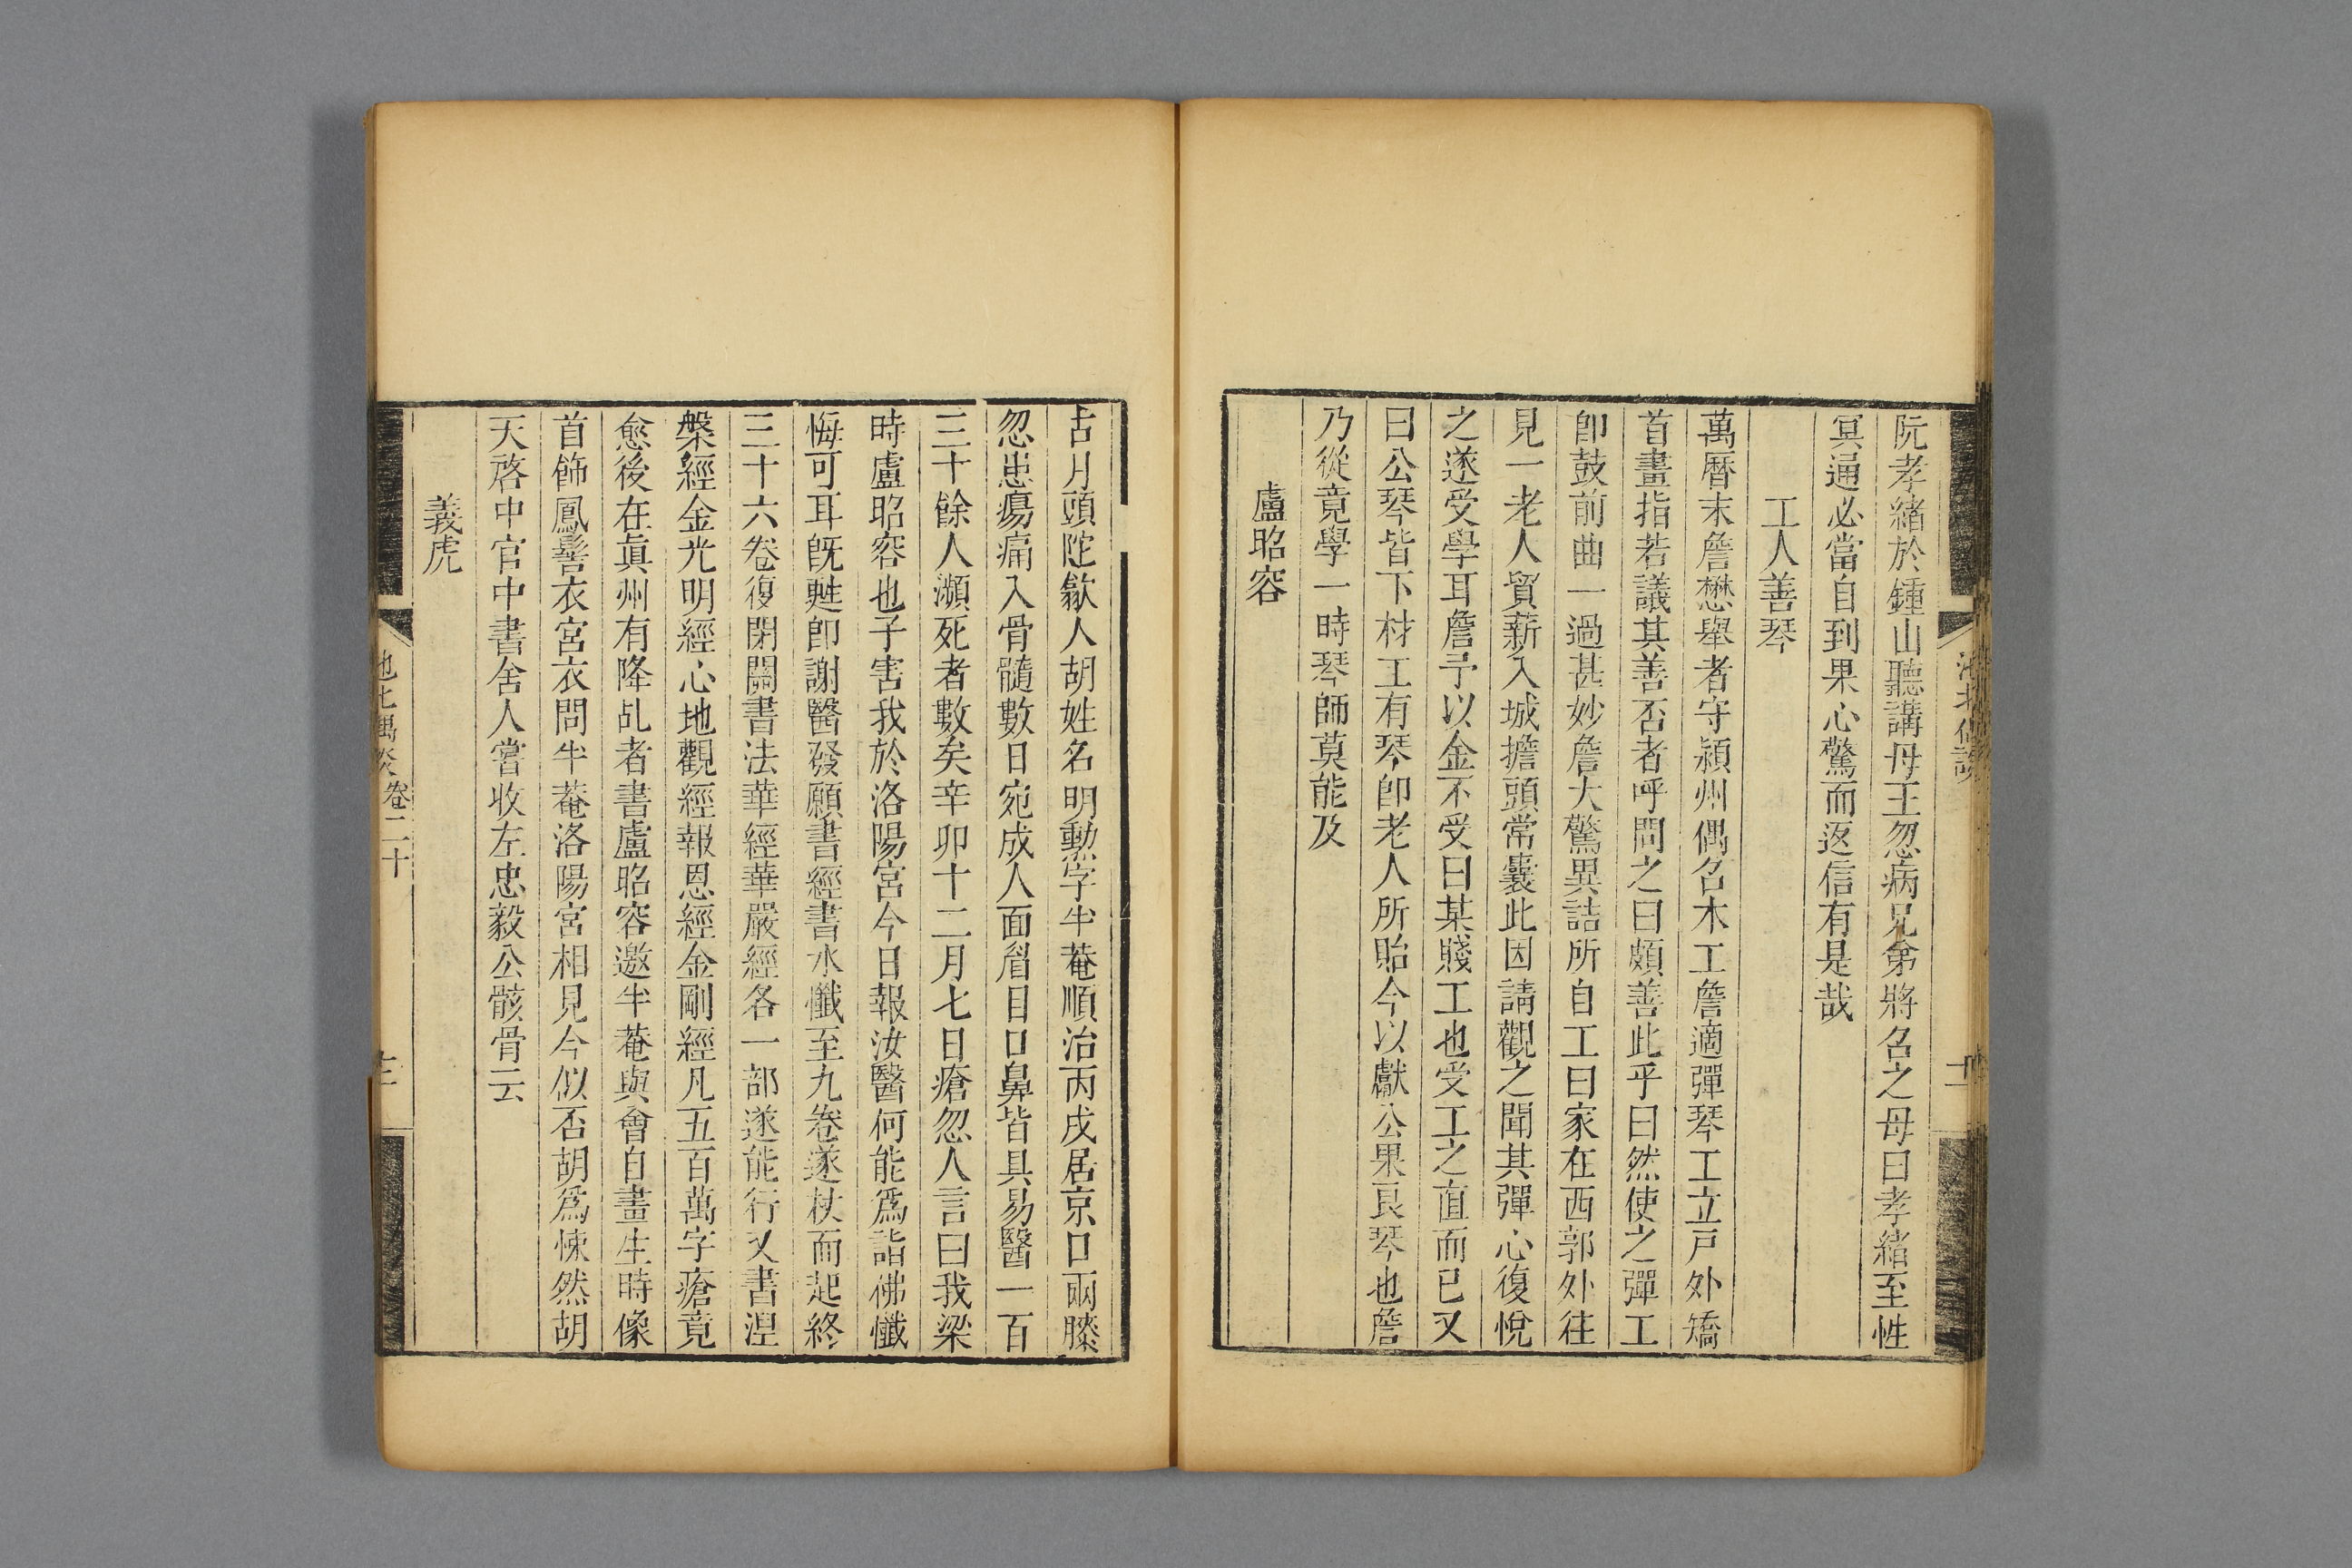 阮孝緒於鍾山聽講母王忽病兄弟將召之母曰孝緒至性
冥通必當自到果心驚而返信有是哉
工人善琴
萬曆末詹懋舉者守潁州偶召木工詹適彈琴工立戸外矯
首畫指若議其善否者呼問之曰頗善此乎曰然使之彈工
卽鼓前曲一過甚妙詹大驚異詰所自工曰家在西郭外往
見一老人貿薪入城擔頭常囊此因請觀之聞其彈心復悅
之遂受學耳詹予以金不受曰某賤工也受工之直而已又
曰公琴皆下材工有琴卽老人所貽今以獻公果良琴也詹
乃從竟學一時琴師莫能及
盧昭容
古月頭陀歙人胡姓名明勲字半菴順治丙戌居京口兩膝
忽患瘍痛入骨髓數日宛成人面眉目口鼻皆具易醫一百
三十餘人瀕死者數矣辛卯十二月七日瘡忽人言曰我梁
時盧昭容也子害我於洛陽宮今日報汝醫何能爲詣佛懺
悔可耳旣甦卽謝醫發願書經書水懺至九卷遂杖而起終
三十六卷復閉關書法華經華嚴經各一部遂能行又書湼
槃經金光明經心地觀經報恩經金剛經凡五百萬字瘡竟
愈後在眞州有降乩者書盧昭容邀半菴與會自畫生時像
首飾鳳髻衣宮衣問半菴洛陽宮相見今似否胡爲悚然胡
天啓中官中書舍人嘗收左忠毅公骸骨云
義虎
池北偶談 卷二十